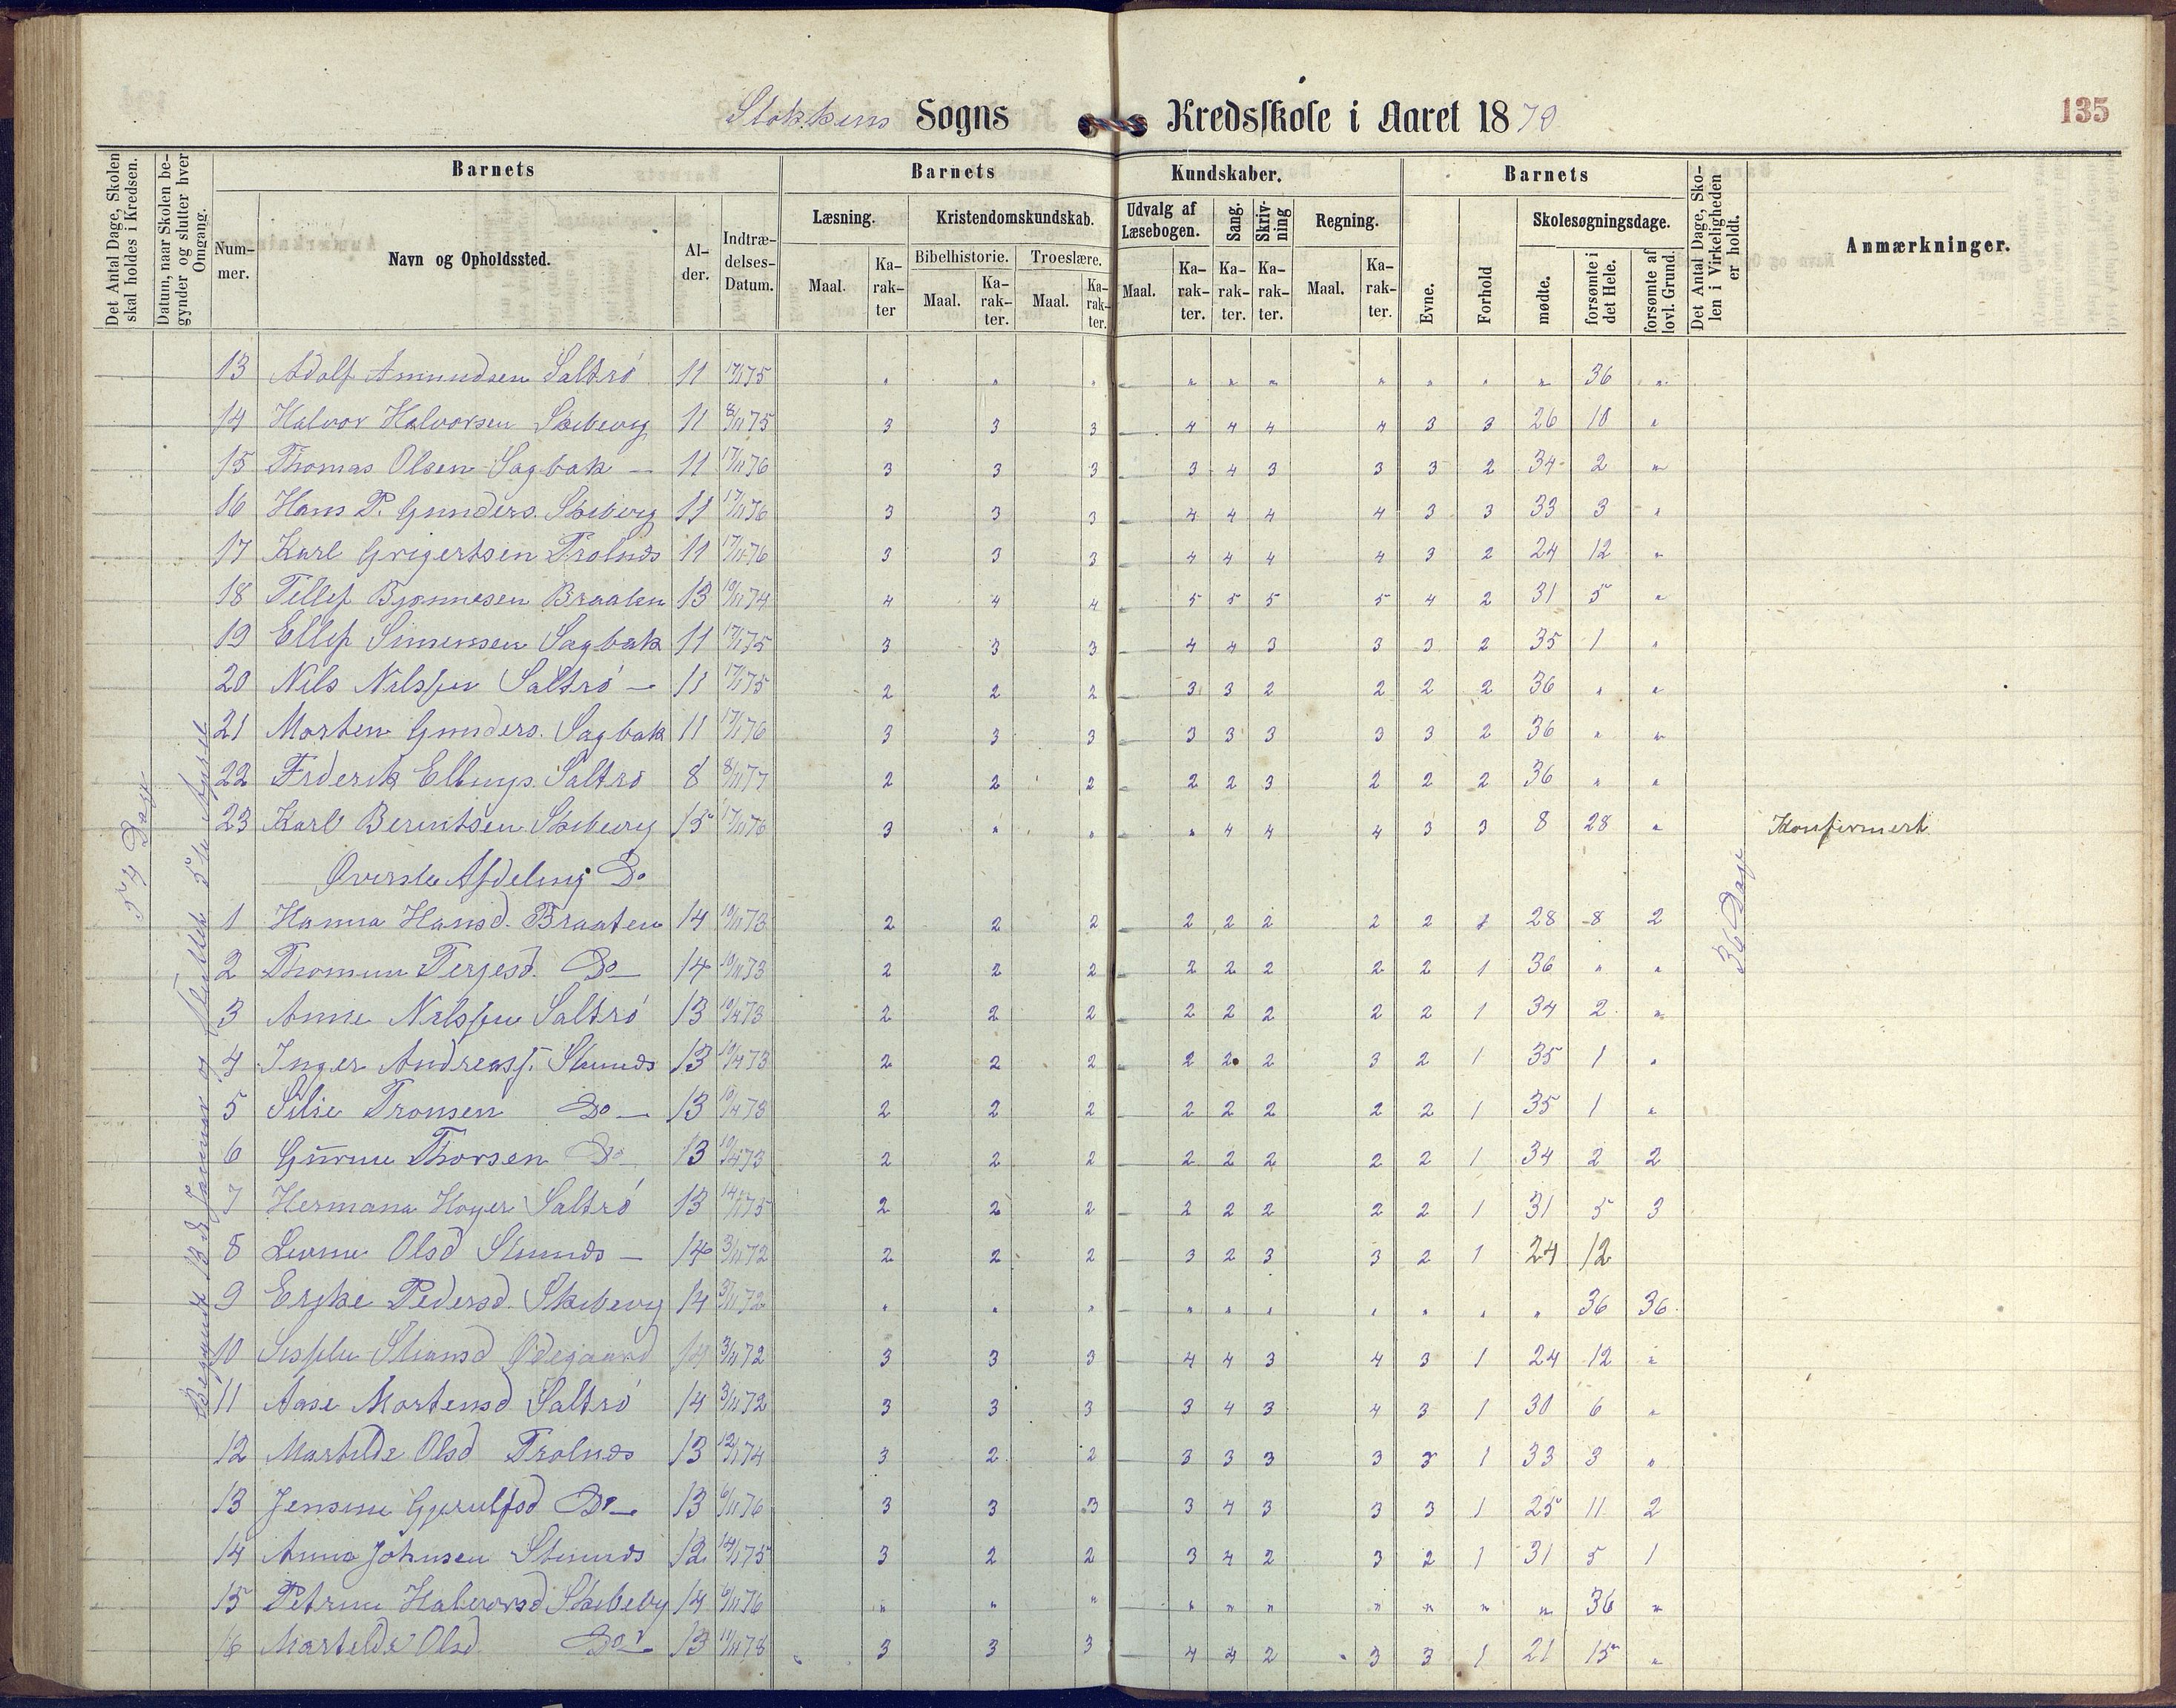 Stokkens Sogns Kredsskole i Aaret 1879
135
Det Antal Dage, Skolen skal holdes i Kredsen.
Datum, naar Skolen begynder og slutter hver Omgang.
Barnets
Nummer.
Navn og Opholdssted.
Alder.
Indtrædelses-Datum.
Barnets Kundskaber.
Læsning.
Maal.
Karakter
Kristendomskundskab.
Bibelhistorie.
Maal.
Karakter.
Troeslære.
Maal.
Karakter.
Udvalg af Læsebogen.
Maal.
Karakter.
Sang.
Karakter.
Skrivning
Karakter.
Regning.
Maal.
Karakter.
Barnets
Evne.
Forhold
Skolesøgningsdage.
mødte.
forsømte i det Hele.
forsømte af lovl. Grund.
Det Antal Dage, Skolen i Virkeligheden er holdt.
Anmærkninger.
54 Dage
36 Dage
13 Adolf Amundsen Saltrö 11 17/1 75 " " " " " " " " " " 36 "
14 Halvor Halvorsen Skibevig 11 8/11 75 3 3 3 4 4 4 4 3 3 26 10 "
15 Thomas Olsen Sagbak — 11 17/11 76 3 3 3 3 4 3 3 3 2 34 2 "
16 Hans P. Gunders. Skibevig 11 17/11 76 3 3 3 4 4 4 4 3 3 33 3 "
17 Karl Grigertsen Trolnds 11 17/11 76 3 3 3 4 4 4 4 3 2 24 12 "
18 Tellef Bjonnesen Braaten 13 10/11 74 4 4 4 5 5 5 5 4 2 31 5 "
19 Ellef Simensen Sagbak 11 17/1 75 3 3 3 4 4 3 3 3 2 35 1 "
20 Nils Nilssen Saltrö — 11 17/1 75 2 2 2 3 3 2 2 2 2 36 " "
21 Morten Gunders. Sagbak 11 17/1 76 3 3 3 3 3 3 3 3 2 36 " "
22 Frderik Ellings. Saltrö 8 8/11 77 2 2 2 2 2 3 2 2 2 36 " "
23 Karl Berntsen Skibevig 15 17/11 76 3 " " " 4 4 4 3 3 8 28 " Konfirmert
Øverste Afdeling Do
1 Hanna Hansd. Braaten 14 10/11 73 2 2 2 2 2 2 2 2 1 28 8 2
2 Thomine Terjesd. Do — 14 10/11 73 2 2 2 2 2 2 2 2 1 36 " "
3 Anne Nilssen Saltrö 13 10/4 73 2 2 2 2 2 2 2 2 1 34 2 "
4 Inger Andreass. Stunds 13 10/4 73 2 2 2 2 2 2 3 2 1 35 1 "
5 Silie Tronsen Do — 13 10/4 73 2 2 2 2 2 2 2 2 1 35 1 "
6 Gurine Thorsen Do 13 10/4 73 2 2 2 2 2 2 2 2 1 34 2 2
7 Hermana Hoyer Saltrö 13 14/1 75 2 2 2 2 2 2 2 2 1 31 5 3
8 Olsd Stunds — 14 3/11 72 2 2 2 3 2 3 3 2 1 24 12
9 Pedersd. Skibevig 14 3/11 72 " " " " " " " " " " 36 36
10 Ødegaard 14 3/11 72 3 3 3 4 4 3 4 3 1 24 12 "
11 Aase Mortensd Saltrö 14 3/11 72 3 3 3 3 4 3 4 3 1 30 6 "
12 Martilde Olsd Trolnds 13 12/1 74 3 2 2 3 3 3 3 3 1 33 3 "
13 Jensine Gjerulfsd Do — 13 6/11 76 3 3 3 3 4 3 3 3 1 25 11 2
14 Anna Johnsen Stunds 12 14/1 75 3 2 2 3 4 2 3 2 1 31 5 1
15 Petrine Halvorsd Skibevig 14 6/11 76 " " " " " " " " " " 36 "
16 Martilde Olsd Do 13 11/11 78 3 3 3 4 4 2 3 3 1 21 15 "